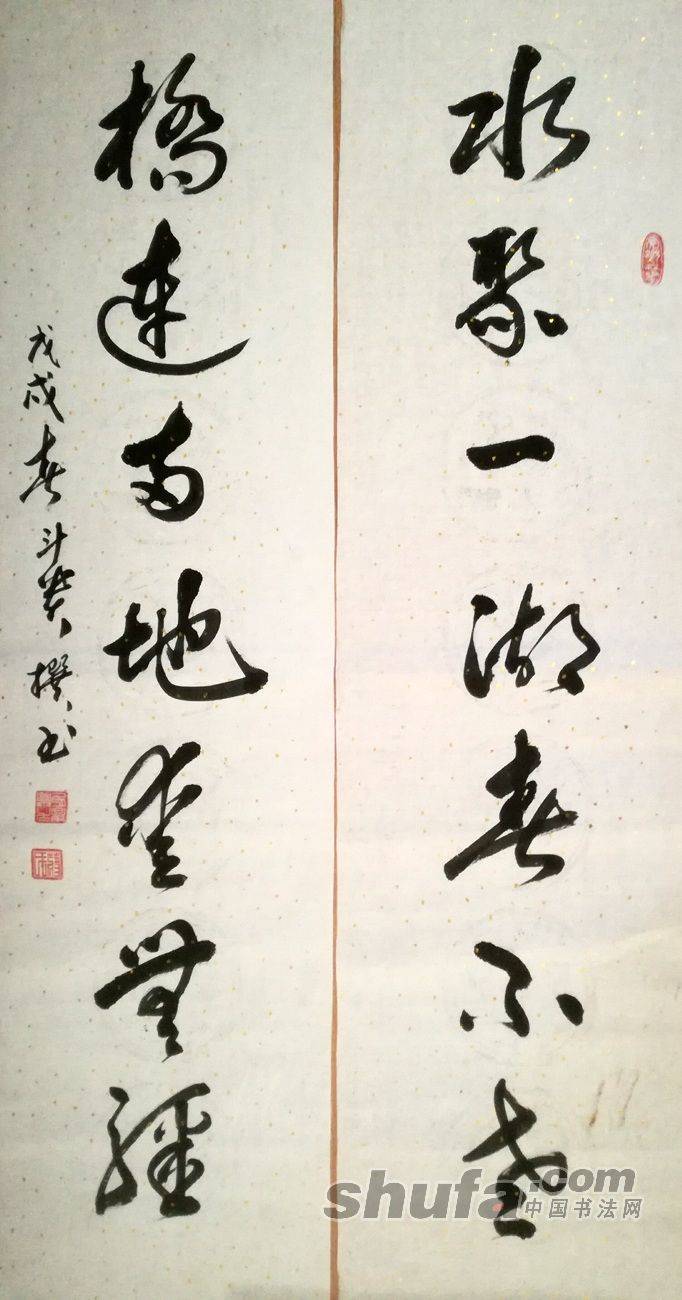 水聚一湖春不盡
橋連兩地愛無疆
戊戌春斗撰书
shufa.com
中国书法网